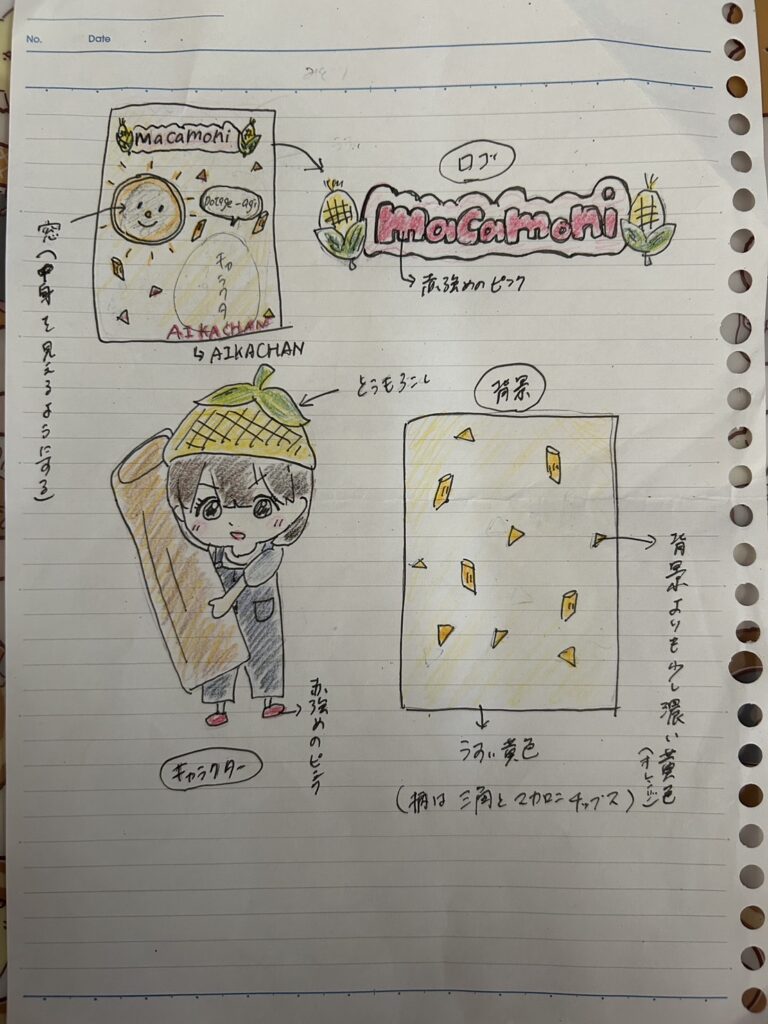 No.
Date
macamoni
Potage-agi
キャラクタ
AIKACHAN
AIKACHAN
窓(中身を見えるようにする)
ロゴ
macamoni
赤強めのピンク
とうもろこし
赤強めのピンク
キャラクター
背景
背景よりも少し濃い黄色
(オレンジ)
うすい黄色
(柄は三角とマカロニチップス)